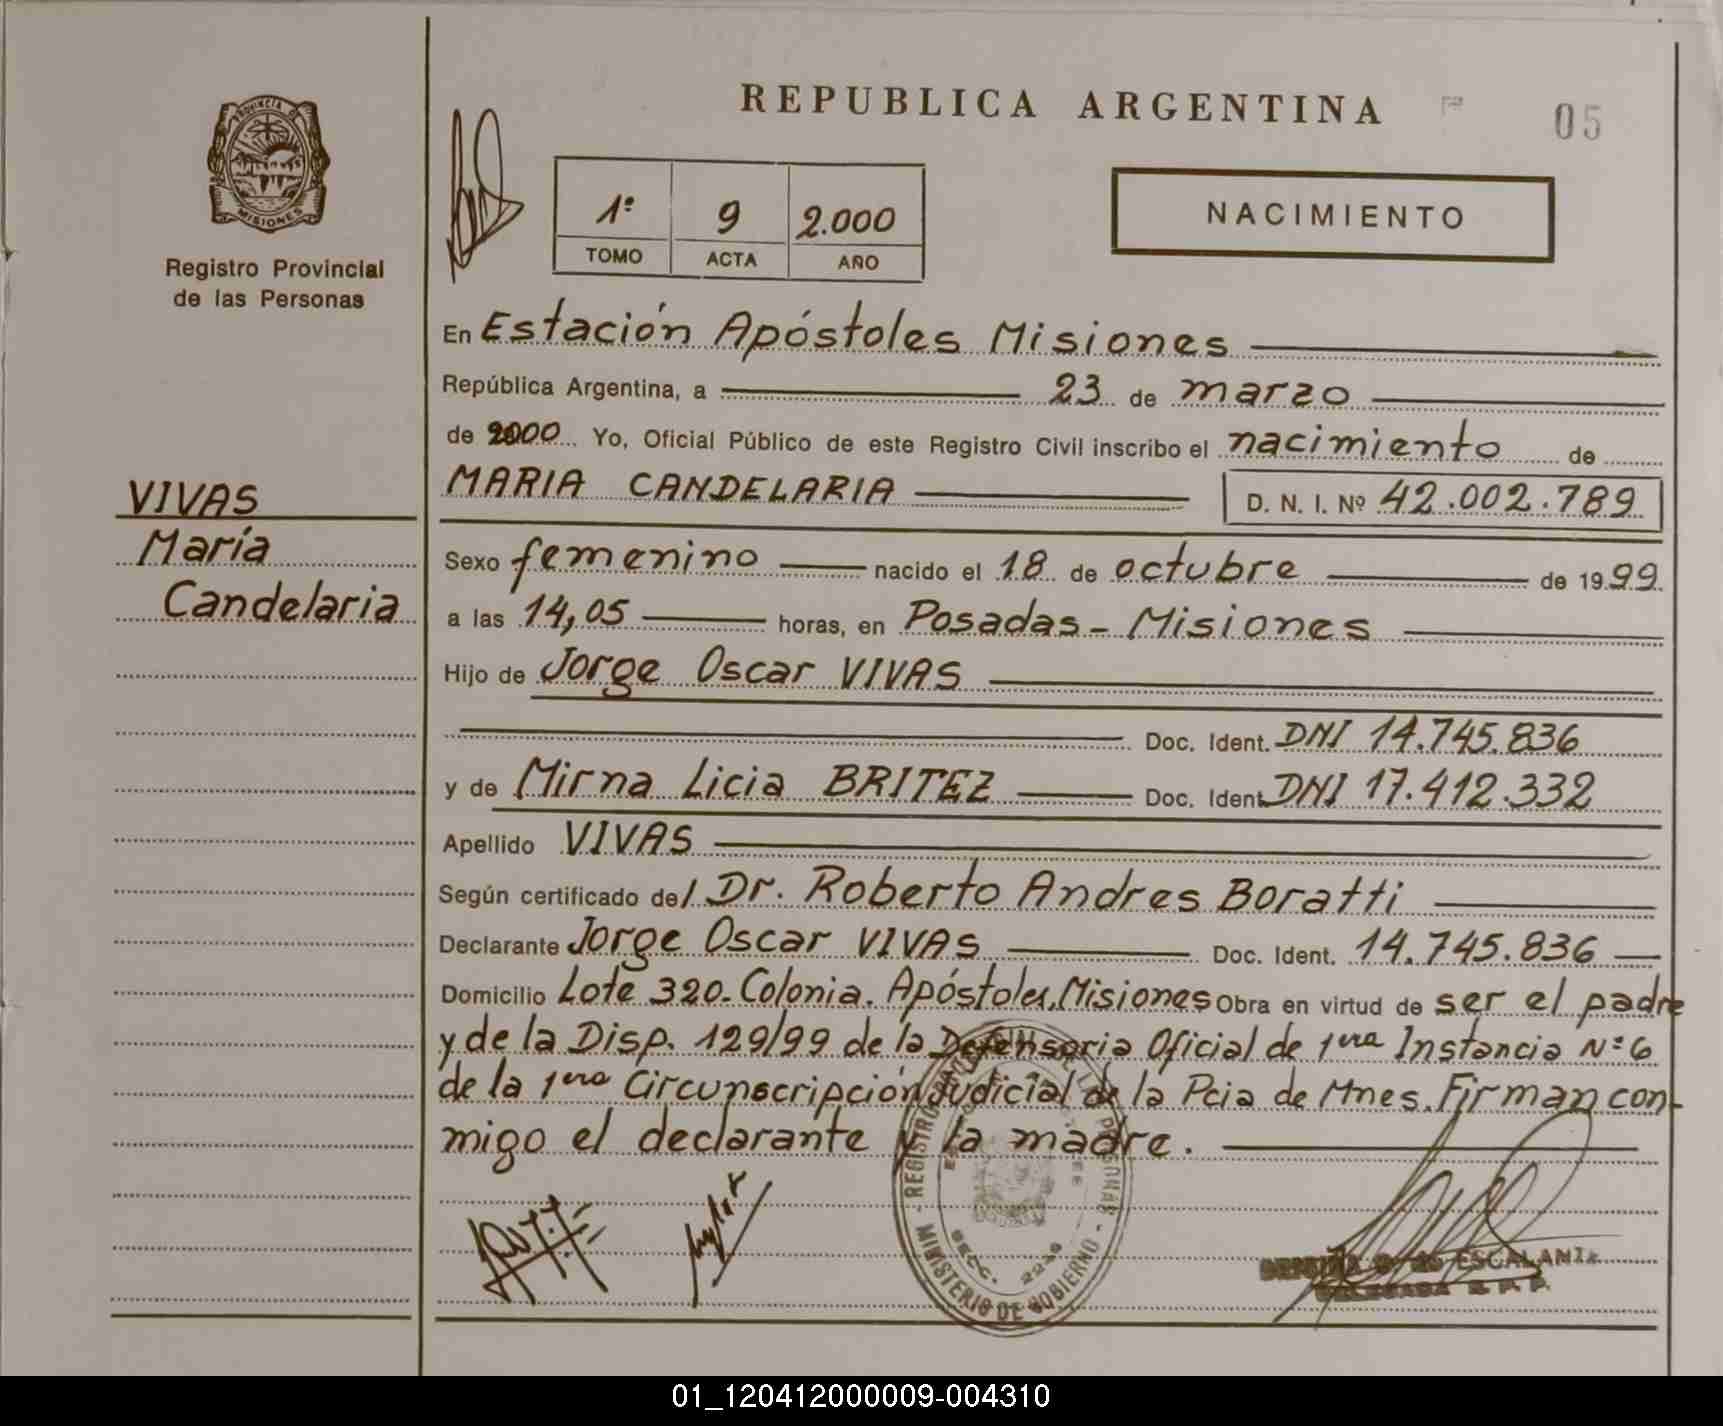 REPUBLICA ARGENTINA
05
PROVINCIA DE
MISIONES
Registro Provincial
de las Personas
1º 9 2.000
TOMO ACTA AÑO
NACIMIENTO
En Estación Apóstoles Misiones
República Argentina, a 23 de marzo
de 2000 Yo, Oficial Público de este Registro Civil inscribo el nacimiento de
MARIA CANDELARIA D. N. I. Nº 42.002.789
VIVAS
María
Candelaria
Sexo femenino nacido el 18 de octubre de 1999
a las 14,05 horas, en Posadas - Misiones
Hijo de Jorge Oscar VIVAS
Doc. Ident. DNI 14.745.836
y de Mirna Licia BRITEZ Doc. Ident. DNI 17.412.332
Apellido VIVAS
Según certificado del Dr. Roberto Andres Boratti
Declarante Jorge Oscar VIVAS Doc. Ident. 14.745.836
Domicilio Lote 320-Colonia. Apóstoles, Misiones Obra en virtud de ser el padre
y de la Disp. 129/99 de la Defensoria Oficial de 1era Instancia Nº 6
de la 1era Circunscripción Judicial de la Pcia de Mnes. Firman con-
migo el declarante y la madre.
REGISTRO PROVINCIAL DE LAS PERSONAS
MINISTERIO DE GOBIERNO
ESCALANTE
DELEGADA R. P. P.
01_120412000009-004310